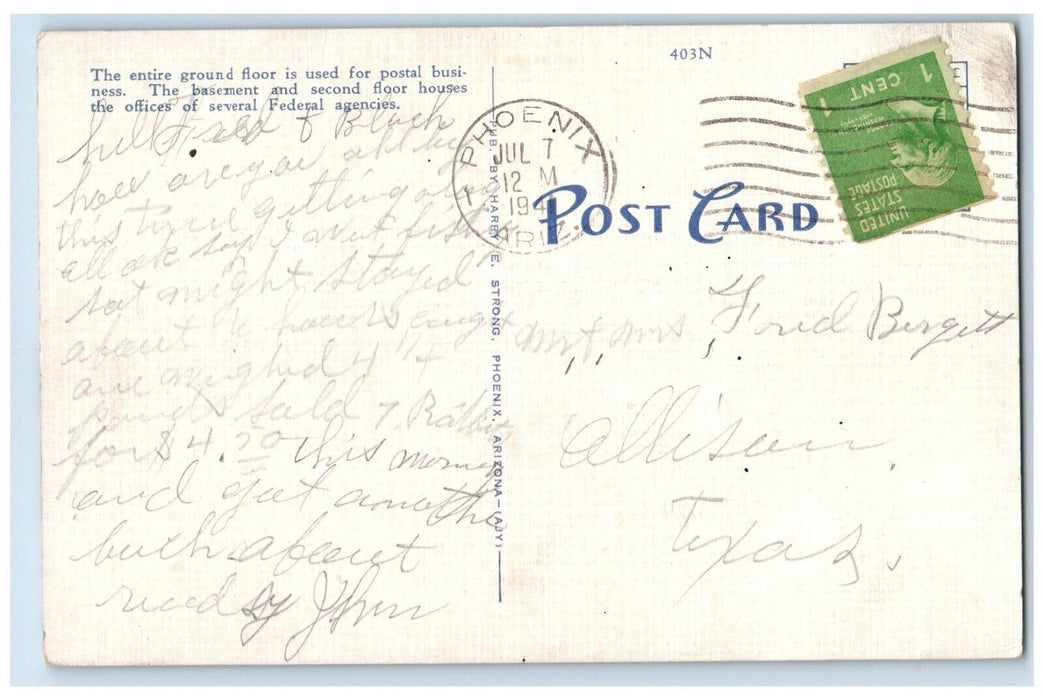 403N
The entire ground floor is used for postal busi-
ness. The basement and second floor houses
the offices of several Federal agencies.
PHOENIX
JUL 7
12 M
194
ARIZ.
POST CARD
1 CENT 1
UNITED
STATES
POSTAGE
PUB. BY HARRY E. STRONG, PHOENIX, ARIZONA—(AJY)
hell Fred &
how are you all by
this time getting along
all ok say I went fishing
sat night stayed
about hours caught
one weighed 4
pounds sold 7 Rabbits
for $4.20 this morning
and got another
buch about
ready John
Mr & Mrs Ford Burgett
Allison,
Texas,